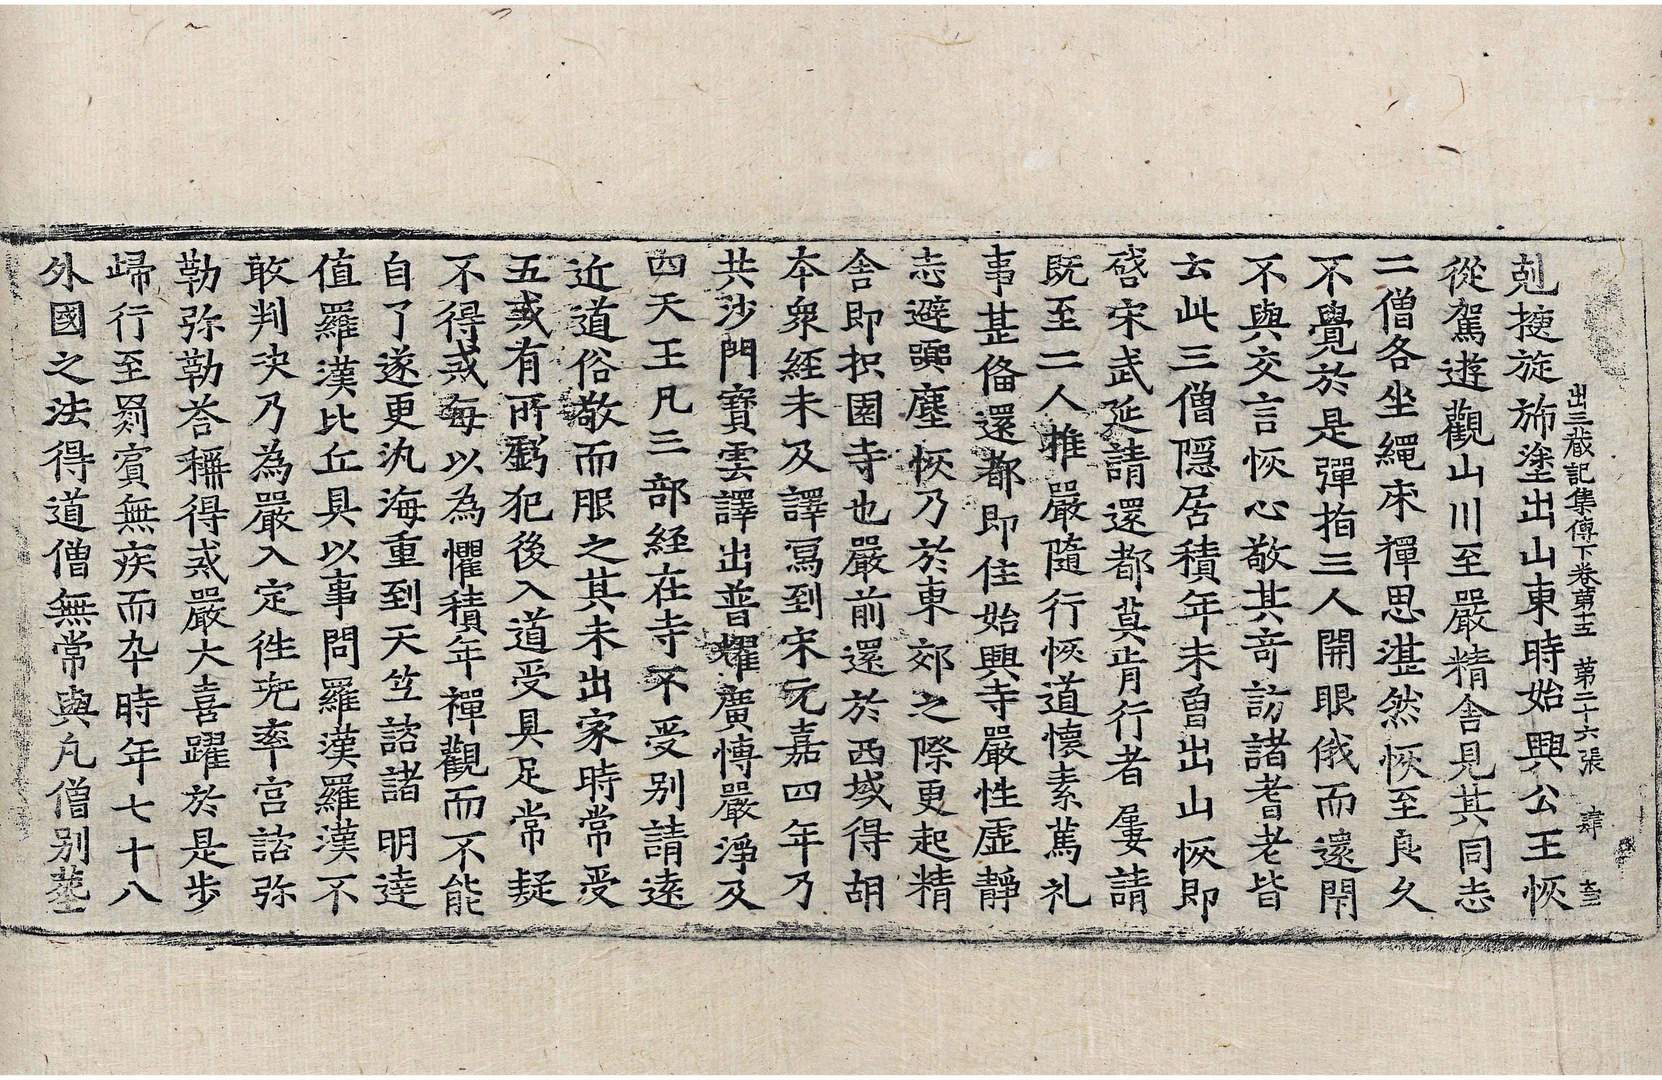 出三藏記集傳下卷第十五 第二十六張 肆
剋捷旋斾塗出山東時始興公王恢
從駕遊觀山川至嚴精舍見其同志
二僧各坐繩床禪思湛然恢至良久
不覺於是彈指三人開眼俄而還閇
不與交言恢心敬其竒訪諸耆老皆
云此三僧隱居積年未曽出山恢即
啓宋武延請還都莫肯行者屢請
既至二人推嚴隨行恢道懷素篤礼
事甚俻還都即住始興寺嚴性虛靜
志避嚻塵恢乃於東郊之際更起精
舍即枳園寺也嚴前還於西域得胡
本衆經未及譯寫到宋元嘉四年乃
共沙門寶雲譯出普耀廣愽嚴淨及
四天王凡三部經在寺不受别請遠
近道俗敬而服之其未出家時常受
五戒有所虧犯後入道受具足常疑
不得戒每以為懼積年禪觀而不能
自了遂更汎海重到天竺諮諸明達
值羅漢比丘具以事問羅漢羅漢不
敢判决乃為嚴入定徃兠率宫諮弥
勒弥勒荅稱得戒嚴大喜躍於是步
歸行至罽賓無疾而卒時年七十八
外國之法得道僧無常與凡僧别葬